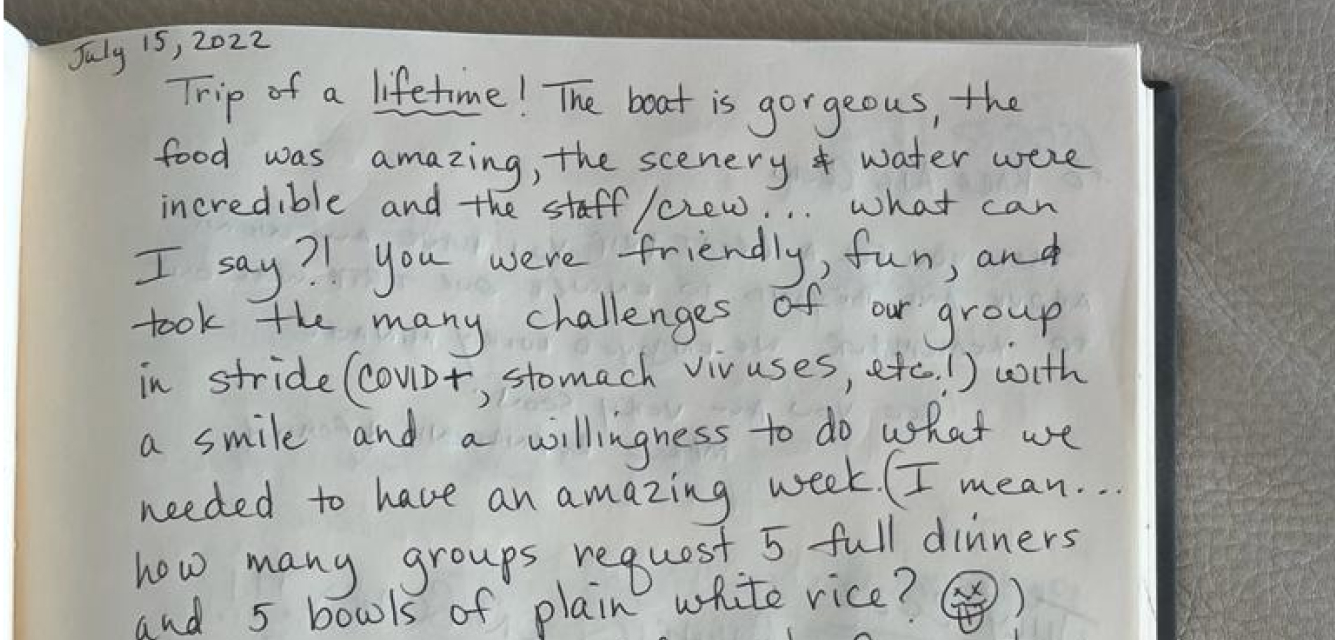 July 15, 2022
Trip of a lifetime! The boat is gorgeous, the
food was amazing, the scenery & water were
incredible and the staff/crew... what can
I say?! You were friendly, fun, and
took the many challenges of our group
in stride (COVID+, stomach viruses, etc.!) with
a smile and a willingness to do what we
needed to have an amazing week. (I mean...
how many groups request 5 full dinners
and 5 bowls of plain white rice? )